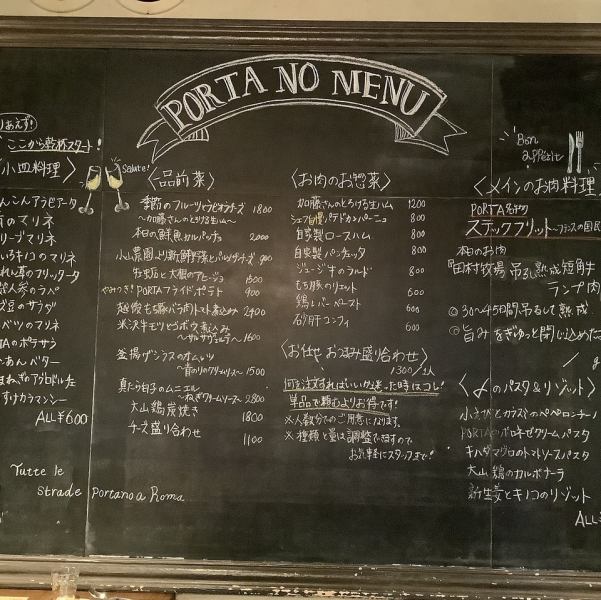 PORTA NO MENU
りあえず!
ここから乾杯スタート!
小皿料理〉
Salute!
のマリネ
リーブマリネ
れん草のフリッタータ
豆のサラダ
ベツのマリネ
TAのポテサラ
あんバター
すけカラマンジー
ALL¥600
〈品前菜〉
季節のフルーツとブッラータチーズ 1800
～加藤さんのとろける生ハム～
本日の鮮魚カルパッチョ 2000
小山農園より新鮮野菜とパルミチーズ 900
牡蛎と大根のアヒージョ 1600
やみつき!PORTAフライドポテト 900
越後もち豚バラ肉トマト煮込み 2400
米沢牛モツとゴボウ煮込み
～サルサヴェルデ～ 1600
釜揚げシラスのオムレツ
～青のりクリームソース～ 1500
真たら白子のムニエル
～ねぎクリームソース～ 2800
大山鶏炭焼き 1800
チーズ盛り合わせ 1100
〈お肉のお惣菜〉
加藤さんのとろける生ハム 1200
シェフ自慢パテドカンパーニュ 800
自家製ロースハム 800
自家製パンチェッタ 800
もち豚のリエット 600
鶏レバーペースト 600
砂肝コンフィ 600
〈お任せおつまみ盛り合わせ〉
1300/1人
何を注文すればいいか迷った時はコレ!
単品で頼むよりお得です!
※人数分でのご用意になります。
※種類と量は調整できますので
お気軽にスタッフまで!
Bon
appétit
〈メインのお肉料理
PORTA名物
ステックフリット～フランスの国民
本日のお肉
田村牧場 吊るし熟成短角牛
ランプ肉
◎30～45日間吊るして熟成
◎旨みをぎゅっと閉じ込めた
〈〆のパスタ&リゾット〉
小えびとカラスミのペペロンチーノ
PORTAのボロネーゼクリームパスタ
キハダマグロのトマトソースパスタ
大山鶏のカルボナーラ
新生姜とキノコのリゾット
ALL
Tutte le
strade portano a Roma